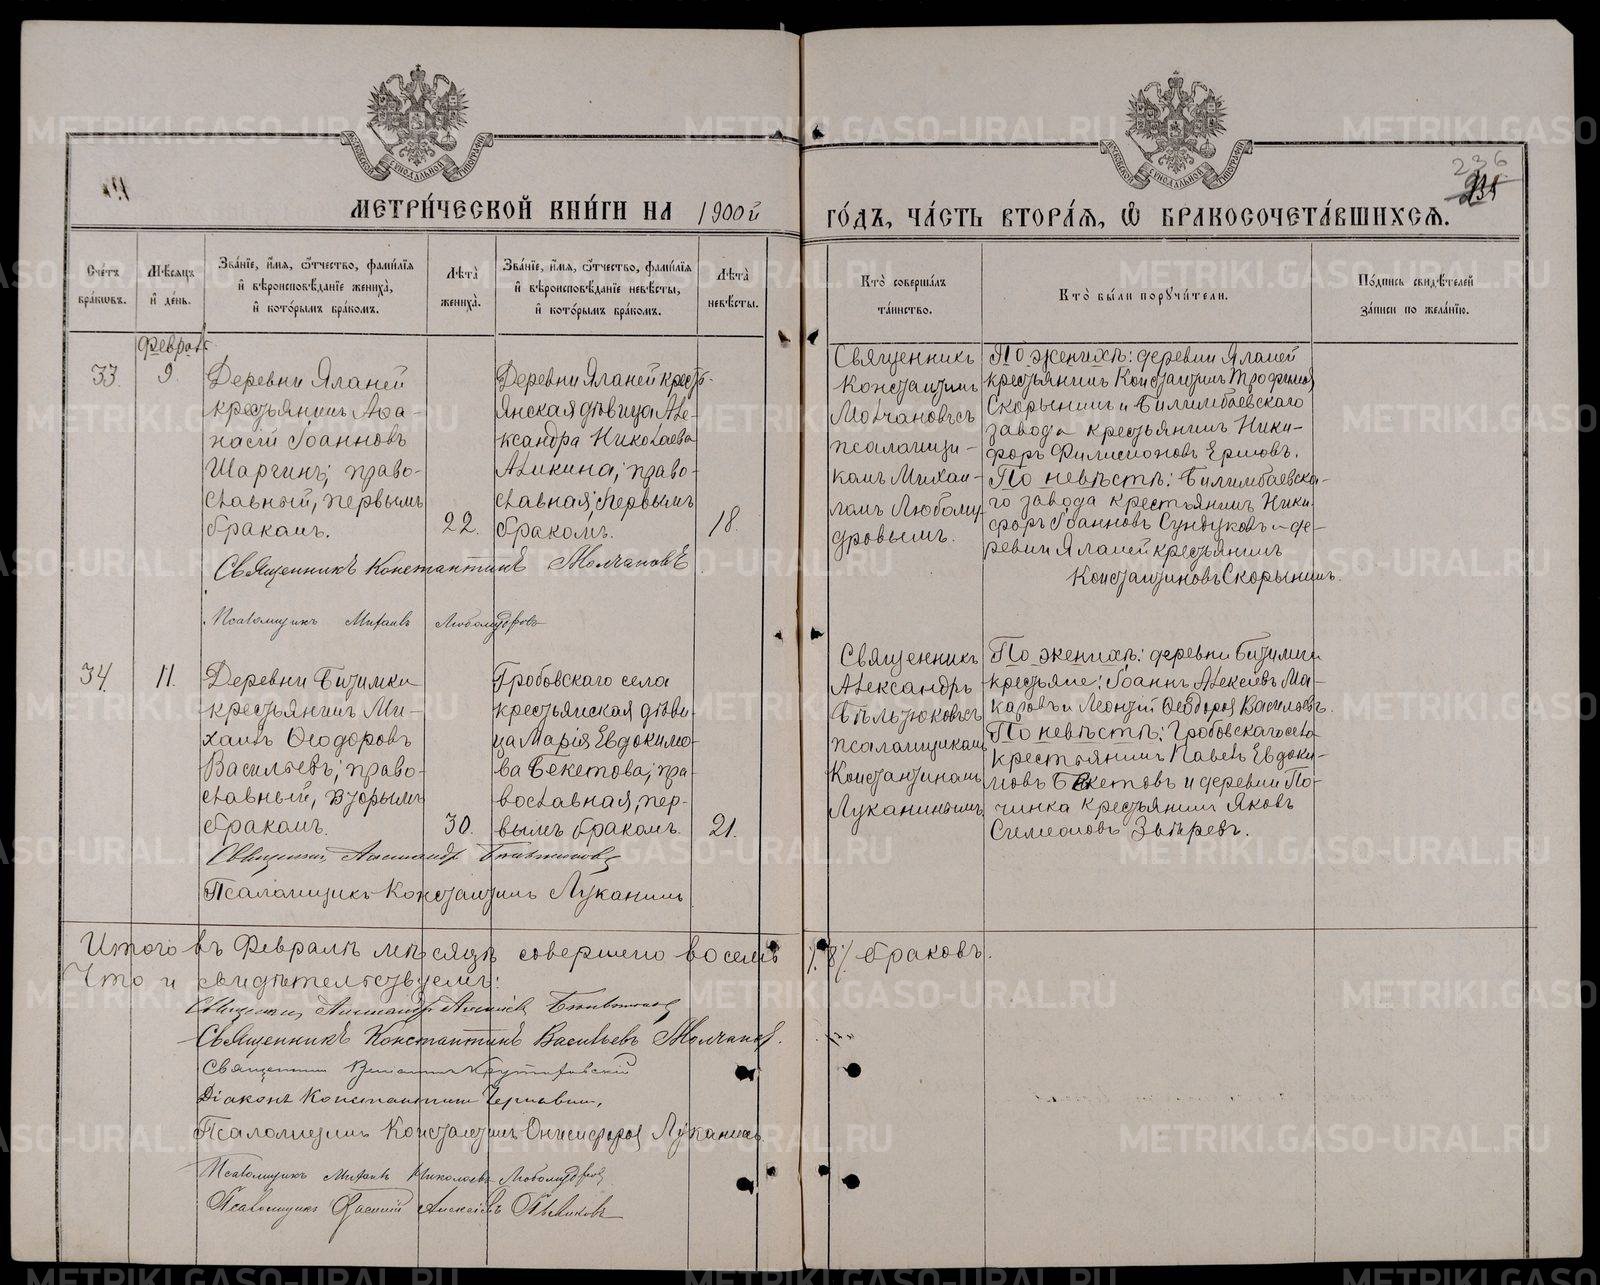 МЕТРИ́ЧЕСКОЙ КНИ́ГИ НА 1900й ГО́ДЪ, ЧА́СТЬ ВТОРА́Я, Ѡ БРАКОСОЧЕТА́ВШИХСЯ.
236
Сче́тъ бра́ковъ.
Мѣ́сяцъ и де́нь.
Зва́ніе, и́мя, ѻ́тчество, фами́лія
и вѣроисповѣ́даніе жениха̀,
и кото́рымъ бра́комъ.
Лѣта̀ жениха̀.
Зва́ніе, и́мя, ѻ́тчество, фами́лія
и вѣроисповѣ́даніе невѣ́сты,
и кото́рымъ бра́комъ.
Лѣта̀ невѣ́сты.
Кто̀ соверша́лъ
та́инство.
Кто̀ бы́ли поручи́тели.
По́дпись свидѣ́телей
за́писи по жела́нію.
Февраль
33.
9.
Деревни Яланей
крестьянинъ Аѳа-
насій Іоанновъ
Шаргинъ; право-
славный, первымъ
бракомъ.
22.
Деревни Яланей кресть-
янская дѣвица Але-
ксандра Николаева
Аликина; право-
славная, первымъ
бракомъ.
18.
Священникъ
Константинъ
Молчановъ съ
псаломщи-
комъ Михаи-
ломъ Любому-
дровымъ.
По женихѣ: деревни Яланей
крестьянинъ Константинъ Трофимов
Скорынинъ и Билимбаевскаго
завода крестьянинъ Ники-
форъ Филисоновъ Ершовъ.
По невѣстѣ: Билимбаевска-
го завода крестьянинъ Ники-
форъ Іоанновъ Сундуковъ и де-
ревни Яланей крестьянинъ
Константиновъ Скорынинъ.
Священникъ Константинъ Молчановъ
Псаломщикъ Михаилъ Любомудровъ
34.
11.
Деревни Битимки
крестьянинъ Ми-
хаилъ Ѳеодоровъ
Васильевъ; право-
славный, вторымъ
бракомъ.
30.
Гробовскаго села
крестьянская дѣви-
ца Марія Евдокимо-
ва Бекетова; пра-
вославная, пер-
вымъ бракомъ.
21.
Священникъ
Александръ
Бѣльтюковъ съ
псаломщикомъ
Константиномъ
Луканинымъ
По женихѣ: деревни Битимки
крестьяне: Іоаннъ Алексіевъ Ма-
каровъ и Леонтій Ѳеодоров Васильевъ.
По невѣстѣ: Гробовскаго села
крестьянинъ Павелъ Евдоки-
мовъ Бекетовъ и деревни По-
чинка крестьянинъ Яковъ
Симеоновъ
Священникъ Александръ Бѣльтюковъ
Псаломщикъ Константинъ Луканинъ
Итого въ Февралѣ мѣсяцѣ совершено восемь /8/ браковъ.
Что и свидѣтельствуемъ:
Священникъ Александръ Алексіевъ Бѣльтюковъ
Священникъ Константинъ Васильевъ Молчановъ.
Священникъ
Діаконъ Константинъ Чернавинъ,
Псаломщикъ Константинъ Онисифоров Луканинъ
Псаломщикъ Михаилъ Николаевъ Любомудровъ
Псаломщикъ Василій Алексіевъ
METRIKI.GASO-URAL.RU